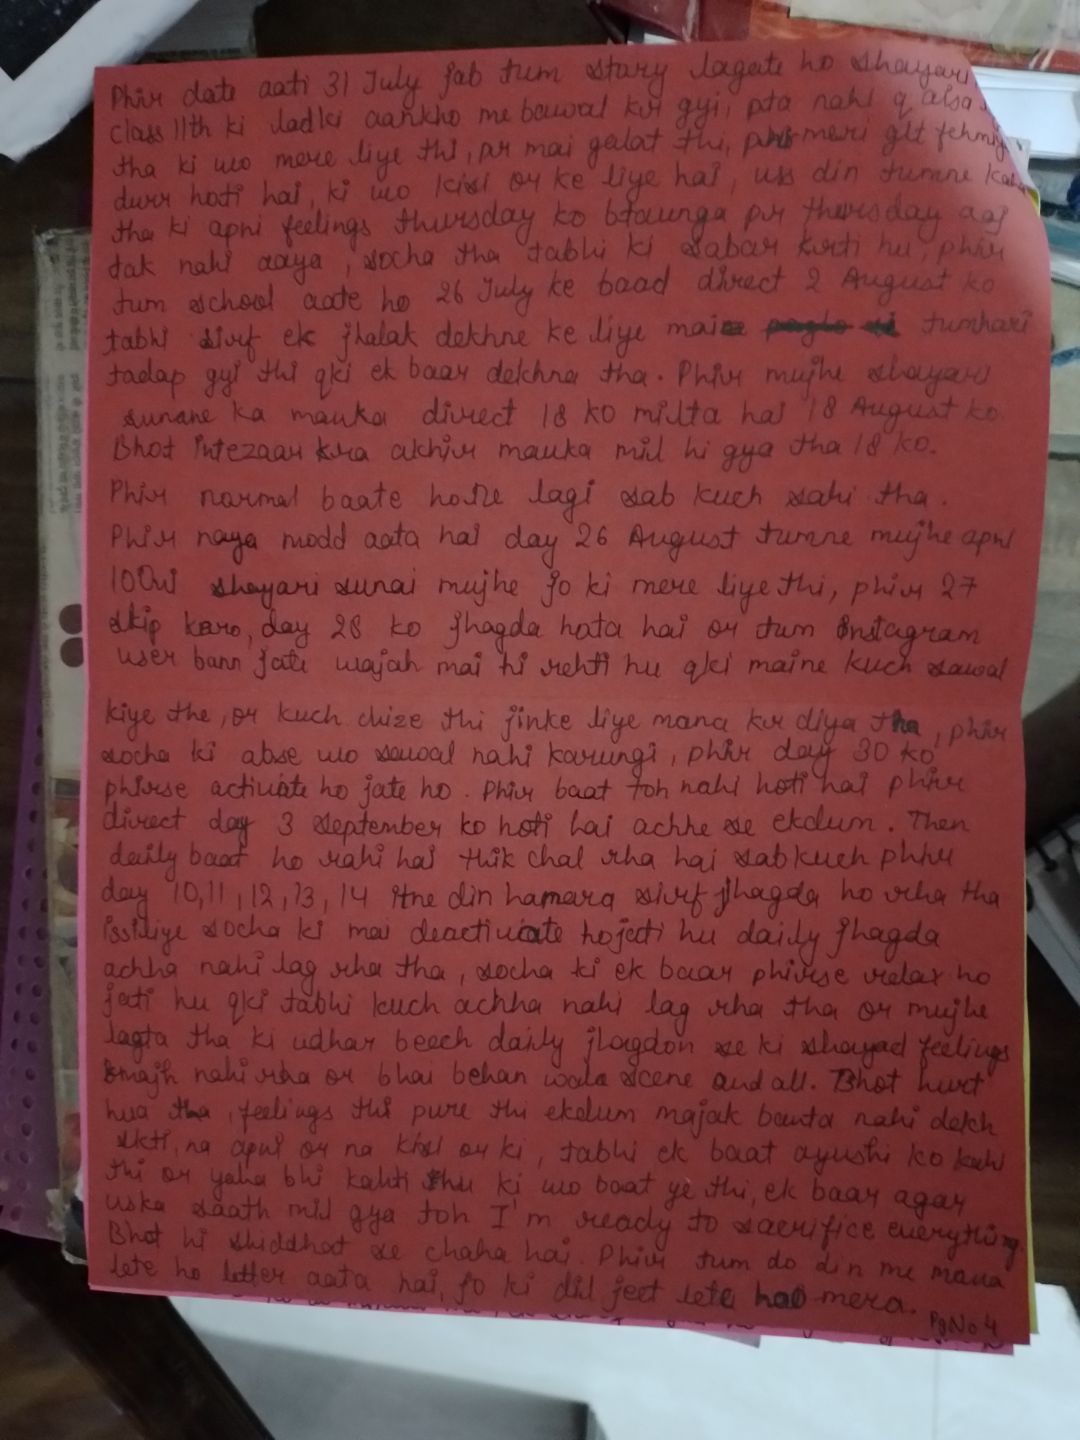 Phir date aati 31 July jab tum story lagate ho shayari
class 11th ki ladki aankho me bawal kr gyi, pta nahi q aisa
tha ki wo mere liye thi, pr mai galat thi, phir meri glt fehmi
durr hoti hai, ki wo kisi or ke liye hai, uss din tumne kaha
tha ki apni feelings thursday ko btaunga pr thursday aaj
tak nahi aaya, socha tha tabhi ki sabar krti hu, phir
tum school aate ho 26 July ke baad direct 2 August ko
tabhi sirf ek jhalak dekhne ke liye mai tumhari
tadap gyi thi qki ek baar dekhna tha. Phir mujhe shayari
sunane ka mauka direct 18 ko milta hai 18 August ko.
Bhot intezaar kra akhir mauka mil hi gya tha 18 ko.
Phir normal baate hone lagi sab kuch sahi tha.
Phir naya modd aata hai day 26 August tumne mujhe apni
100vi shayari sunai mujhe jo ki mere liye thi, phir 27
skip karo, day 28 ko jhagda hota hai or tum instagram
user bann jate wajah mai hi rehti hu qki maine kuch sawal
kiye the, or kuch chize thi jinke liye mana kr diya tha, phir
socha ki abse wo sawal nahi karungi, phir day 30 ko
phirse activate ho jate ho. Phir baat toh nahi hoti hai phir
direct day 3 September ko hoti hai achhe se ekdum. Then
daily baat ho rahi hai thik chal rha hai sabkuch phir
day 10,11,12,13,14 itne din hamara sirf jhagda ho rha tha
issliye socha ki mai deactivate hojati hu daily jhagda
achha nahi lag rha tha, socha ki ek baar phirse relax ho
jati hu qki tabhi kuch achha nahi lag rha tha or mujhe
lagta tha ki udhar beech daily jhagdon se ki shayad feelings
smajh nahi rha or bhai behan wala scene and all. Bhot hurt
hua tha, feelings thi pure thi ekdum majak banta nahi dekh
skti, na apni or na kisi or ki, tabhi ek baat ayushi ko kahi
thi or yaha bhi kahti hu ki wo baat ye thi, ek baar agar
uska saath mil gya toh I'm ready to sacrifice everything.
Bhot hi shiddhat se chaha hai. Phir tum do din me mana
lete ho letter aata hai, jo ki dil jeet lete hao mera.
Pg No 4